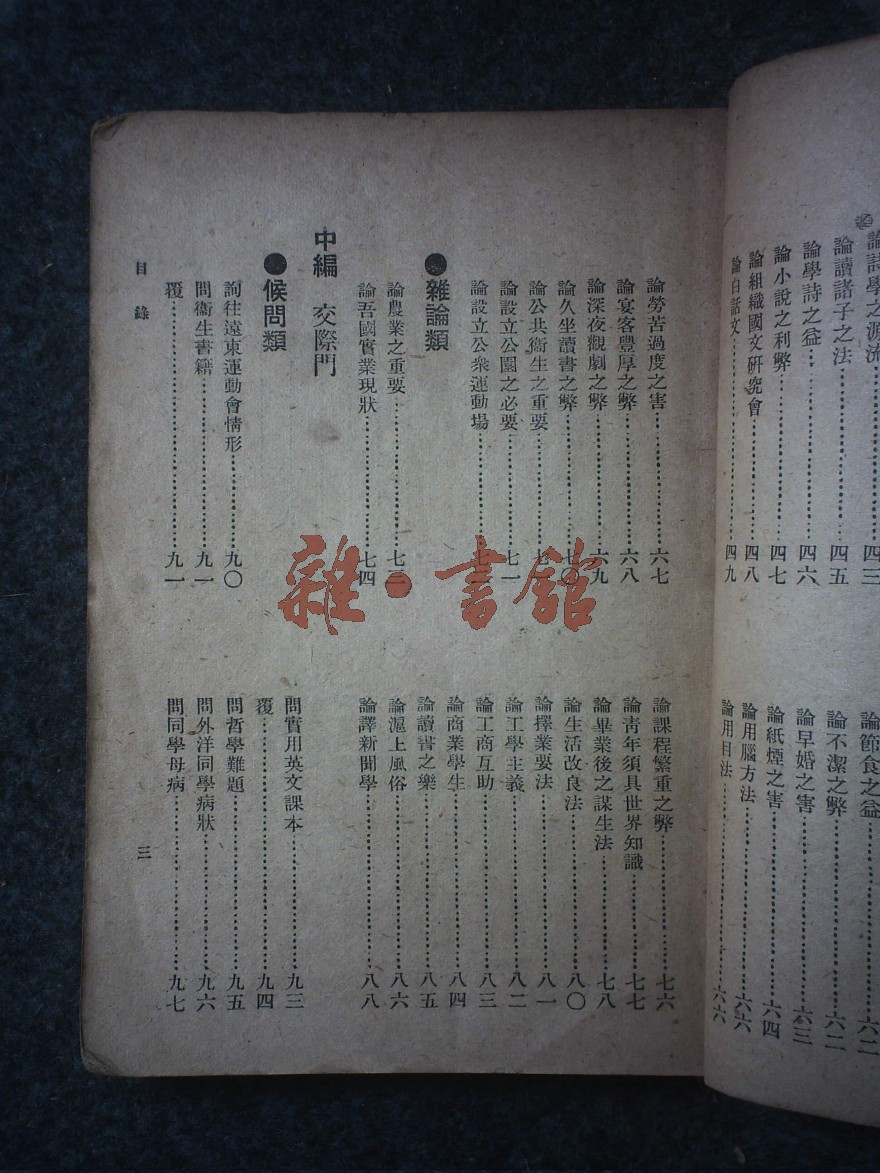 論詩學之源流………四三
論讀諸子之法………四五
論學詩之益………四六
論小說之利弊………四七
論組織國文研究會………四八
論白話文………四九
論節食之益………六二
論不潔之弊………六二
論早婚之害………六三
論紙煙之害………六四
論用腦方法………六六
論用目法………六六
論勞苦過度之害………六七
論宴客豐厚之弊………六八
論深夜觀劇之弊………六九
論久坐讀書之弊………七〇
論公共衞生之重要………七
論設立公園之必要………七一
論設立公衆運動場………七
●雜論類
論農業之重要………七三
論吾國實業現狀………七四
中編 交際門
●候問類
詢往遠東運動會情形………九〇
問衞生書籍………九一
覆………九一
論課程繁重之弊………七六
論靑年須具世界知識………七七
論畢業後之謀生法………七八
論生活改良法………八〇
論擇業要法………八一
論工學主義………八二
論工商互助………八三
論商業學生………八四
論讀書之樂………八五
論滬上風俗………八六
論譯新聞學………八八
問實用英文課本………九三
覆………九四
問哲學難題………九五
問外洋同學病狀………九六
問同學母病………九七
目錄
三
雜·書館